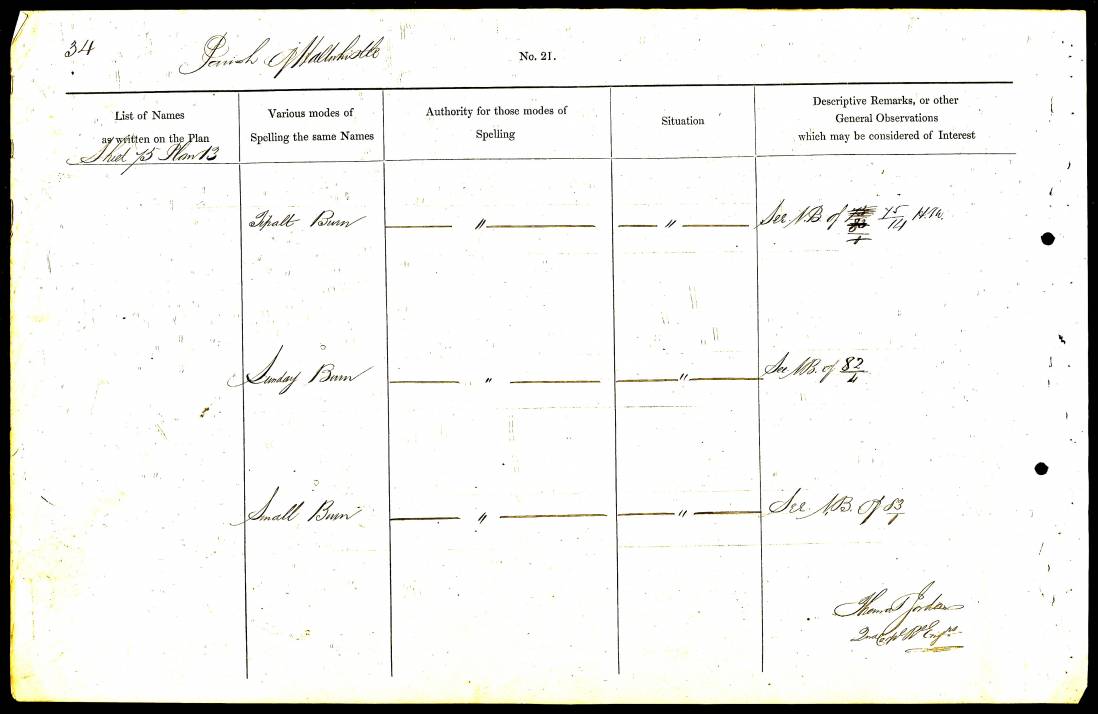 34
Parish of Haltwhistle
No. 21.
List of Names
as written on the Plan
Various modes of
Spelling the same Names
Authority for those modes of
Spelling
Situation
Descriptive Remarks, or other
General Observations
which may be considered of Interest
Sheet 75 Plan 13
Tipalt Burn
"
"
See N.B. of 75/14 H.W.
Sunday Burn
"
"
See N.B. of 82/4
Small Burn
"
"
See N.B. of 83/1
Thomas Jordan
2nd Cpl Rl Engrs